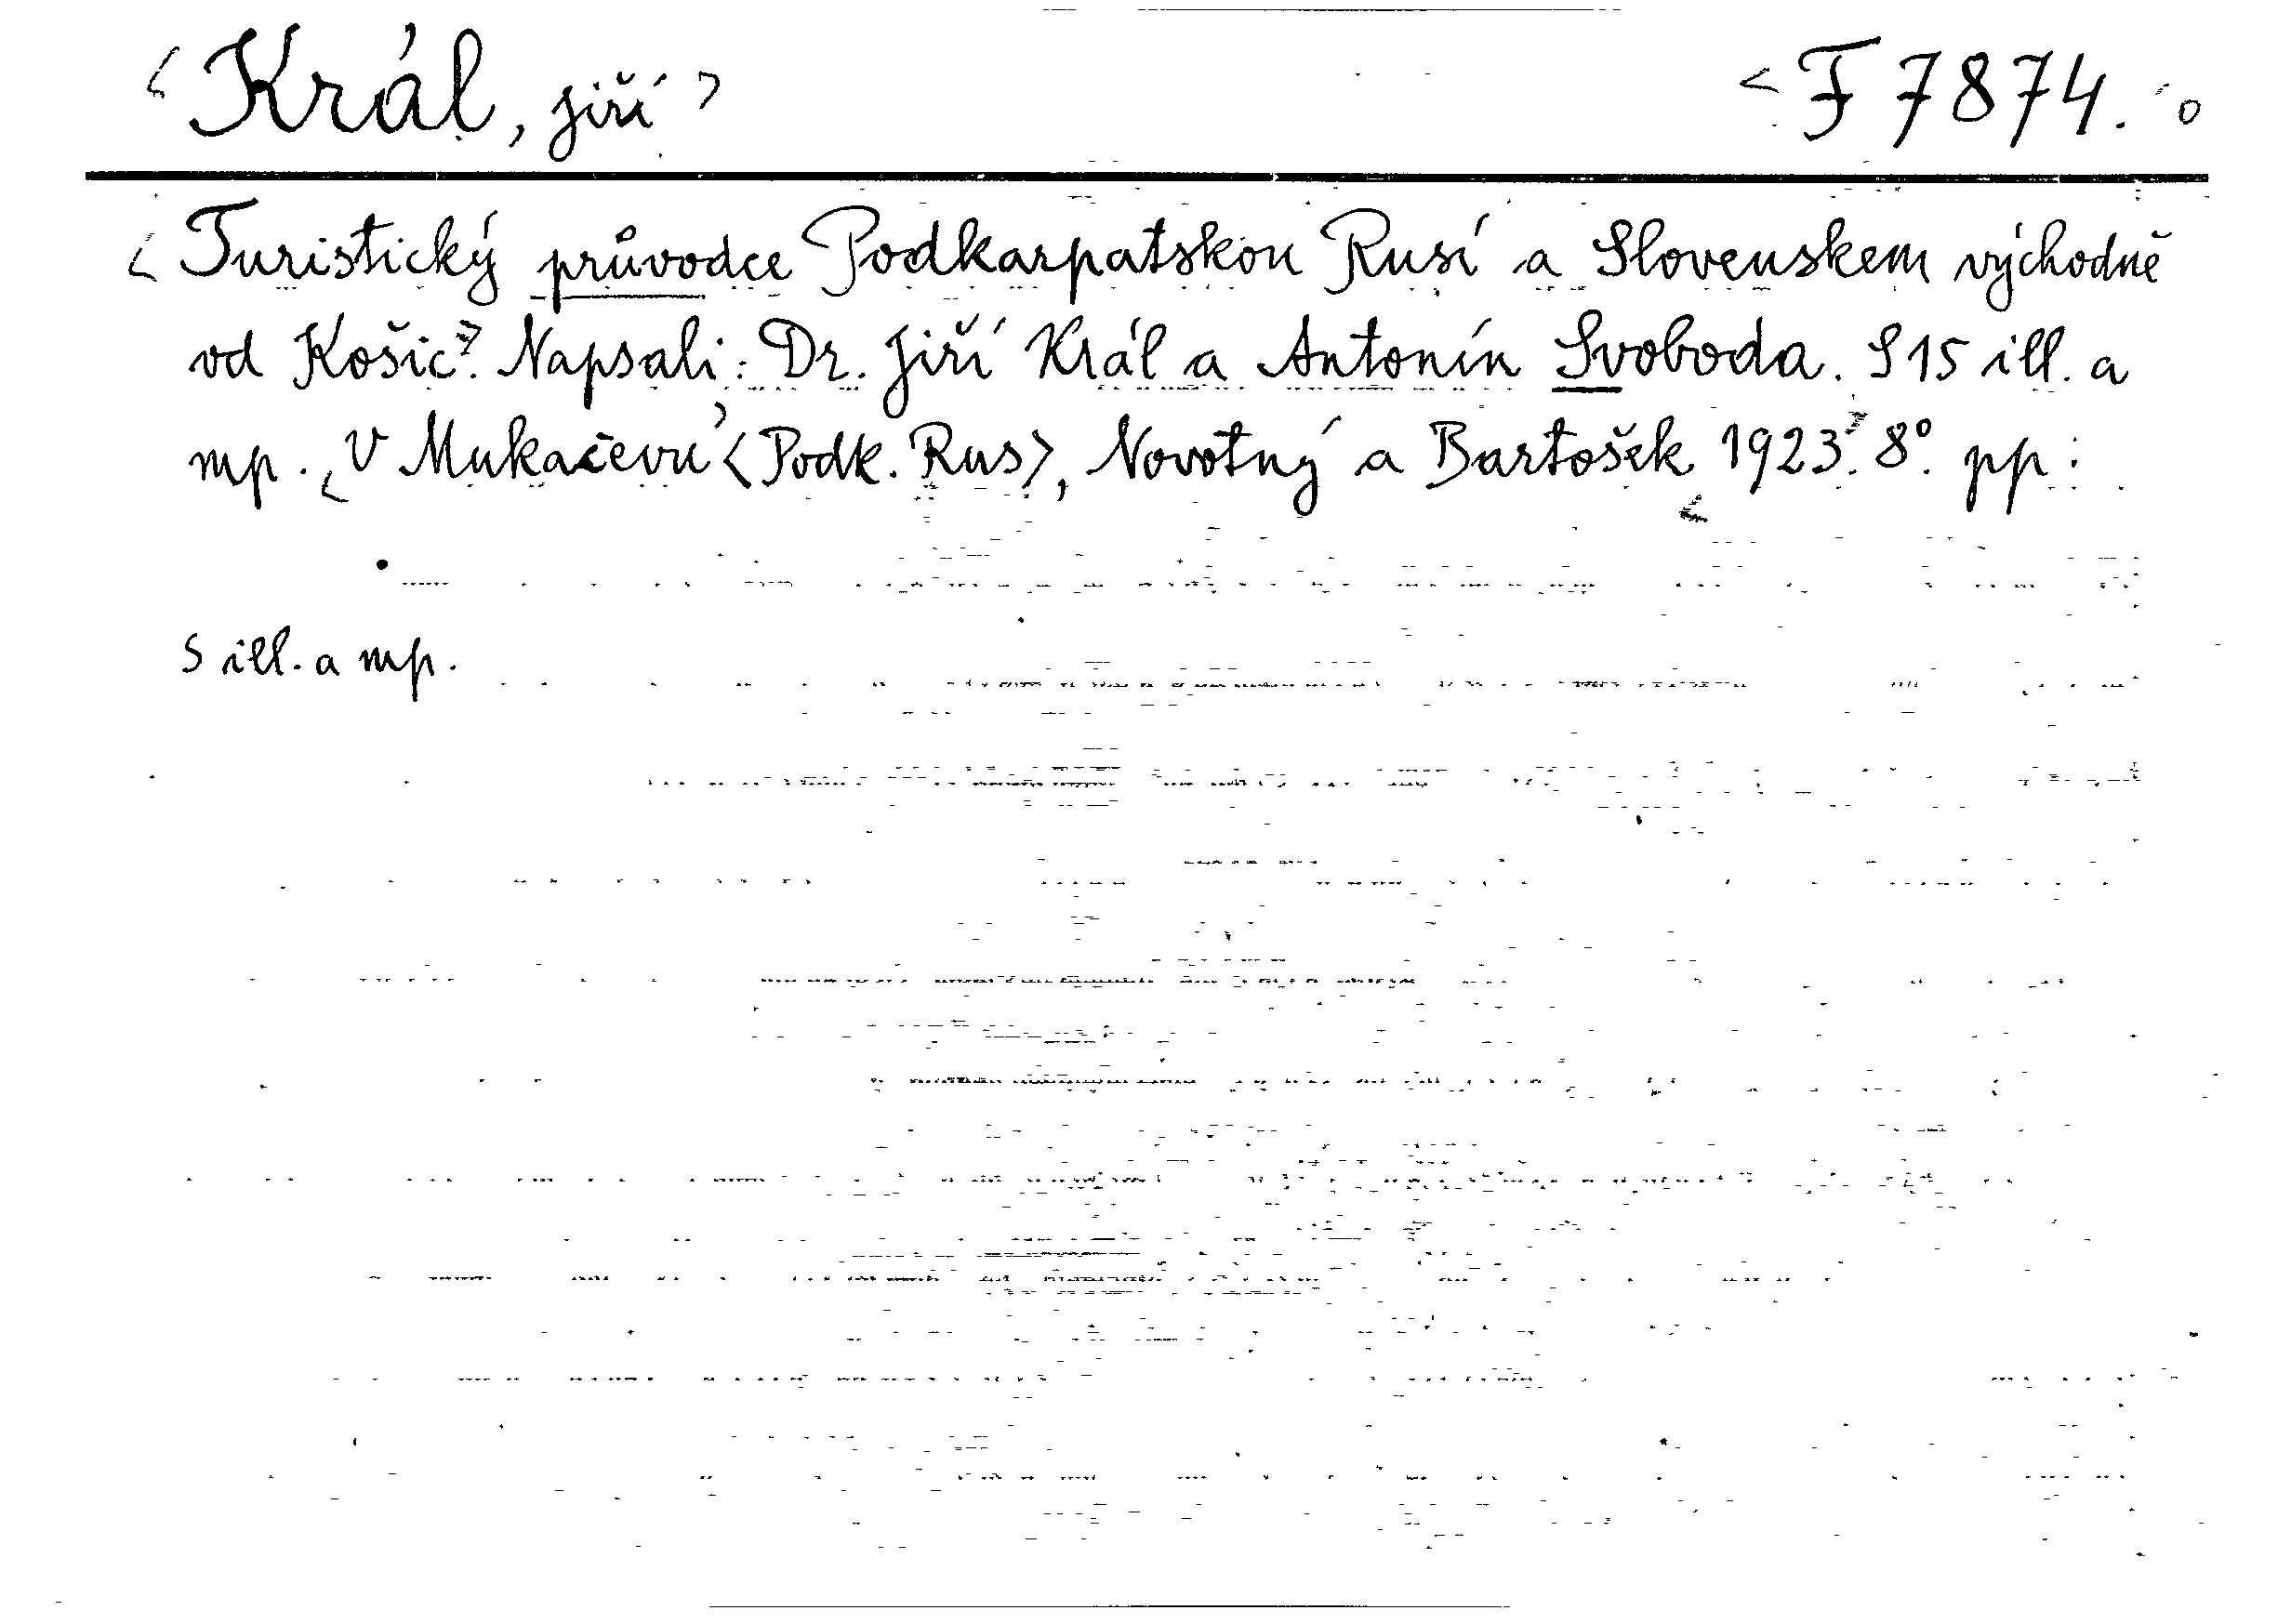 <Král, Jiří> <F 7874.
<Turistický průvodce Podkarpatskou Rusí a Slovenskem východně
od Košic>. Napsali: Dr. Jiří Král a Antonín Svoboda. S 15 ill. a
mp. <V Mukačevu <Podk. Rus>, Novotný a Bartošek 1923>. 8°. pp:
S ill. a mp.